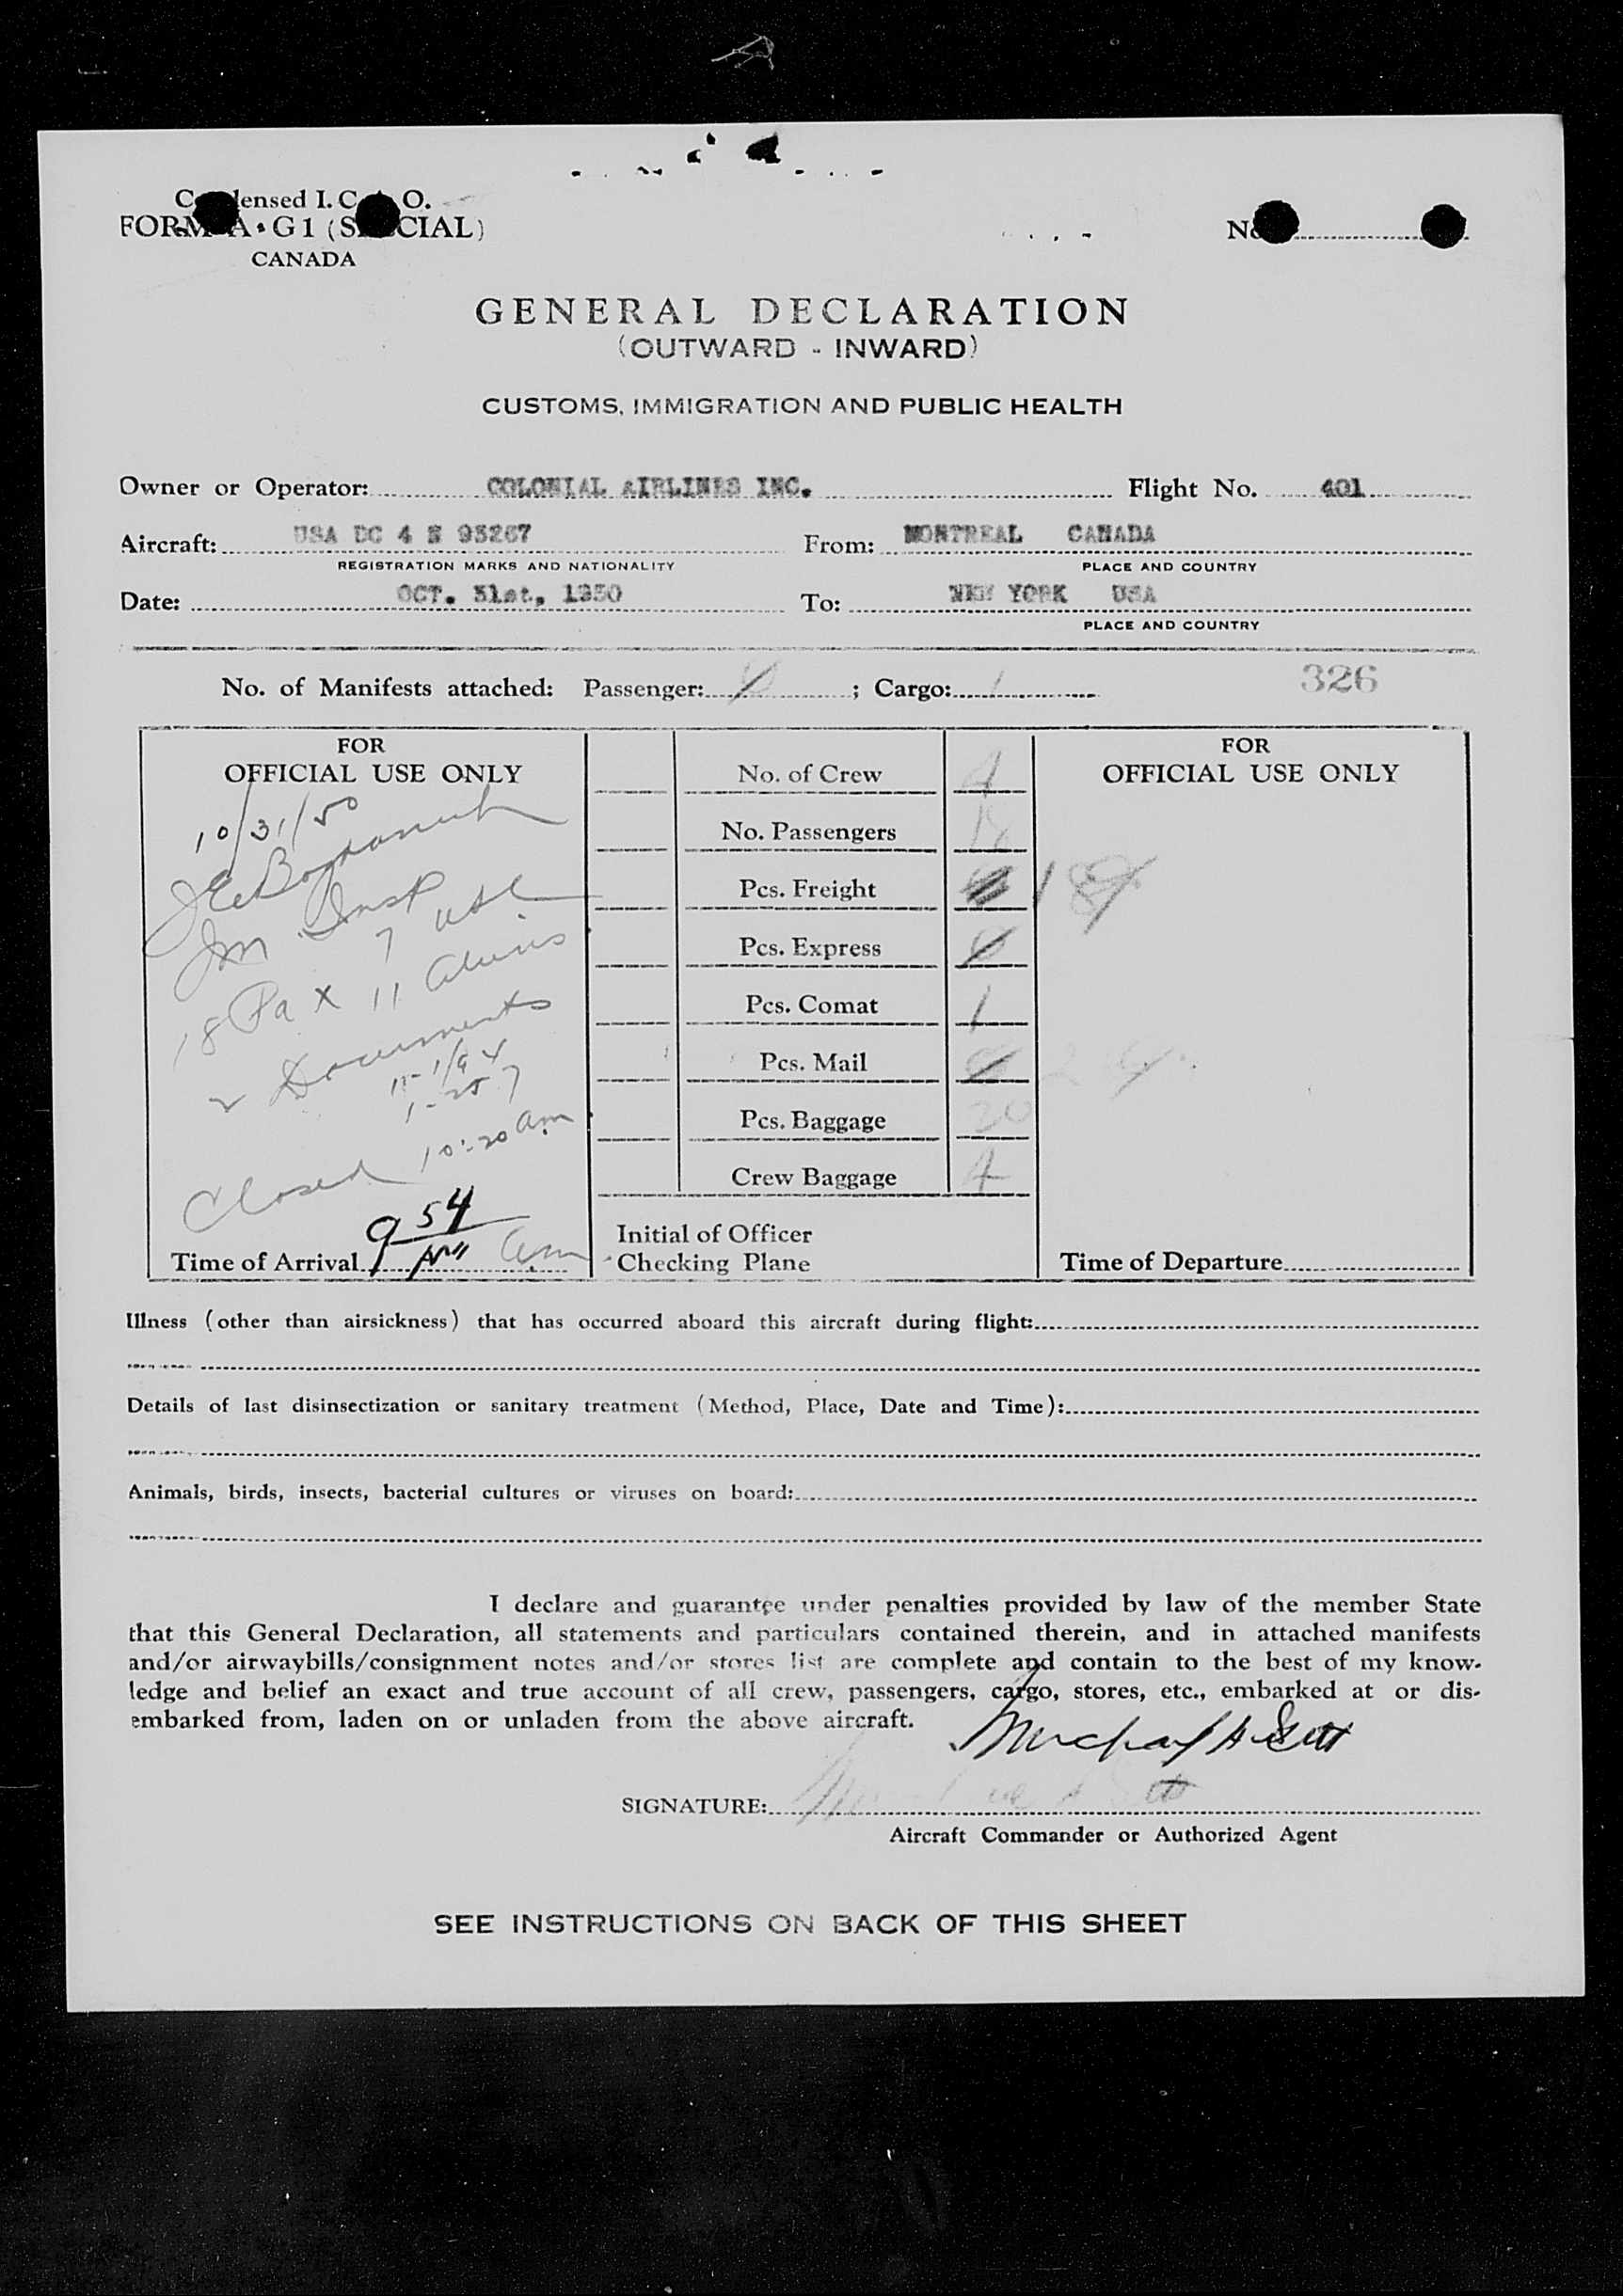 Condensed I. C. A. O.
FORM A·G1 (SPECIAL)
CANADA
No.
GENERAL DECLARATION
(OUTWARD - INWARD)
CUSTOMS, IMMIGRATION AND PUBLIC HEALTH
Owner or Operator: COLONIAL AIRLINES INC. Flight No. 401
Aircraft: USA DC 4 N 95267 From: MONTREAL CANADA
REGISTRATION MARKS AND NATIONALITY PLACE AND COUNTRY
Date: OCT. 31st, 1950 To: NEW YORK USA
PLACE AND COUNTRY
No. of Manifests attached: Passenger: ; Cargo: 1 326
FOR
OFFICIAL USE ONLY
10/31/50
Im Insp
18 Pax 7 USC
11 Aliens
2 Documents
Closed 10:20 am
Time of Arrival 9 54 AM am
No. of Crew 4
No. Passengers 18
Pcs. Freight
Pcs. Express
Pcs. Comat 1
Pcs. Mail
Pcs. Baggage 30
Crew Baggage 4
Initial of Officer
Checking Plane
FOR
OFFICIAL USE ONLY
Time of Departure
Illness (other than airsickness) that has occurred aboard this aircraft during flight:
Details of last disinsectization or sanitary treatment (Method, Place, Date and Time):
Animals, birds, insects, bacterial cultures or viruses on board:
I declare and guarantee under penalties provided by law of the member State
that this General Declaration, all statements and particulars contained therein, and in attached manifests
and/or airwaybills/consignment notes and/or stores list are complete and contain to the best of my know-
ledge and belief an exact and true account of all crew, passengers, cargo, stores, etc., embarked at or dis-
embarked from, laden on or unladen from the above aircraft.
SIGNATURE:
Aircraft Commander or Authorized Agent
SEE INSTRUCTIONS ON BACK OF THIS SHEET